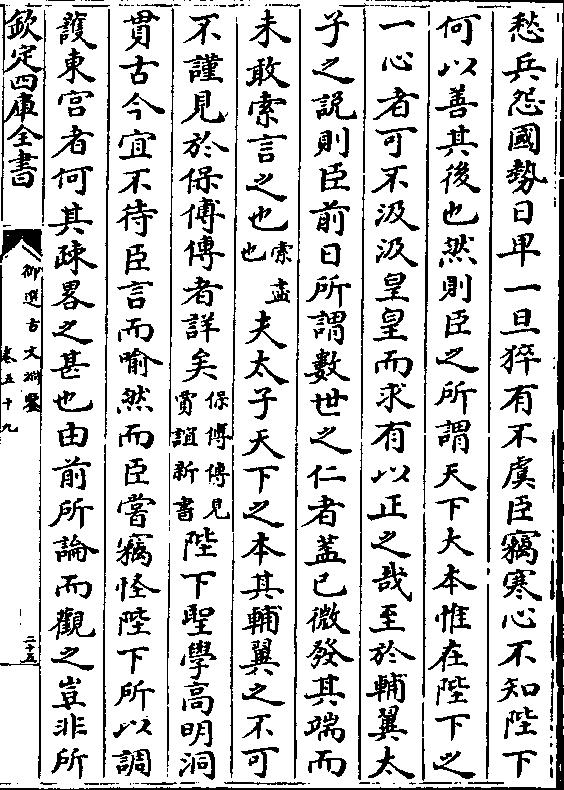 愁兵怨國勢日卑一旦猝有不虞臣竊寒心不知陛下
何以善其後也然則臣之所謂天下大本惟在陛下之
一心者可不汲汲皇皇而求有以正之哉至於輔翼太
子之説則臣前日所謂數世之仁者蓋已微發其端而
未敢索言之也索盡也夫太子天下之本其輔翼之不可
不謹見於保傅傳者詳矣保傅傳見賈誼新書陛下聖學高明洞
貫古今宜不待臣言而喻然而臣嘗竊怪陛下所以調
䕶東宮者何其疎畧之甚也由前所論而觀之豈非所
欽定四庫全書
御選古文淵鑒
卷五十九
二十五